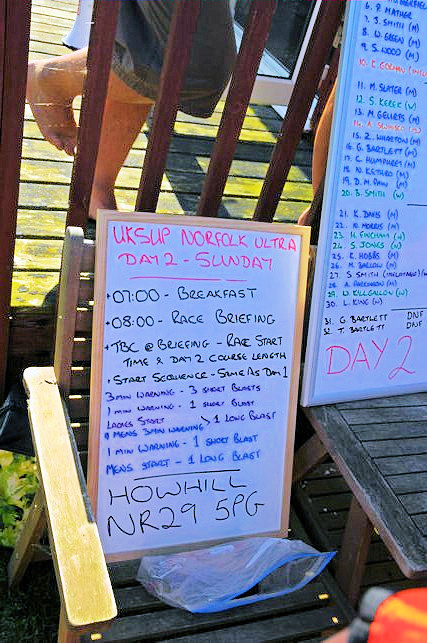 UKSUP NORFOLK ULTRA
DAY 2 - SUNDAY
• 07:00 - BREAKFAST
• 08:00 - RACE BRIEFING
• TBC @ BRIEFING - RACE START
TIME & DAY 2 COURSE LENGTH
• START SEQUENCE - SAME AS DAY 1
3 MIN WARNING - 3 SHORT BLASTS
1 MIN WARNING - 1 SHORT BLAST
LADIES START
& MENS 3MIN WARNING > 1 LONG BLAST
1 MIN WARNING - 1 SHORT BLAST
MENS START - 1 LONG BLAST
HOWHILL
NR29 5PG
6. P. MATHER
7. J. SMITH (M)
8. W. GREEN (M)
9. S. WOOD (M)
11. M. SLATER (M)
12. S. KEEEK (W)
13. M. GELUEPS (M)
15. Z. WHARTON (M)
16. G. BARTLETT (M)
17. C. HUMPHREY (M)
18. N. KETHRO (M)
19. D. M. PAIN (M)
20. B. SMITH (W)
21. K. DAVIS (M)
22. N. MORRIS (M)
23. H. FINCHAM (W)
24. S. JONES (W)
25. K. HOBBS (M)
26. M. BARLOW (M)
27. S SMITH (INFLATABLE)
28. A. PARKINSON (M)
29. D. KILLGALLON (W)
30. L. KING (W)
31. G. BARTLETT DNF
32. T. BARTLETT DNF
DAY 2